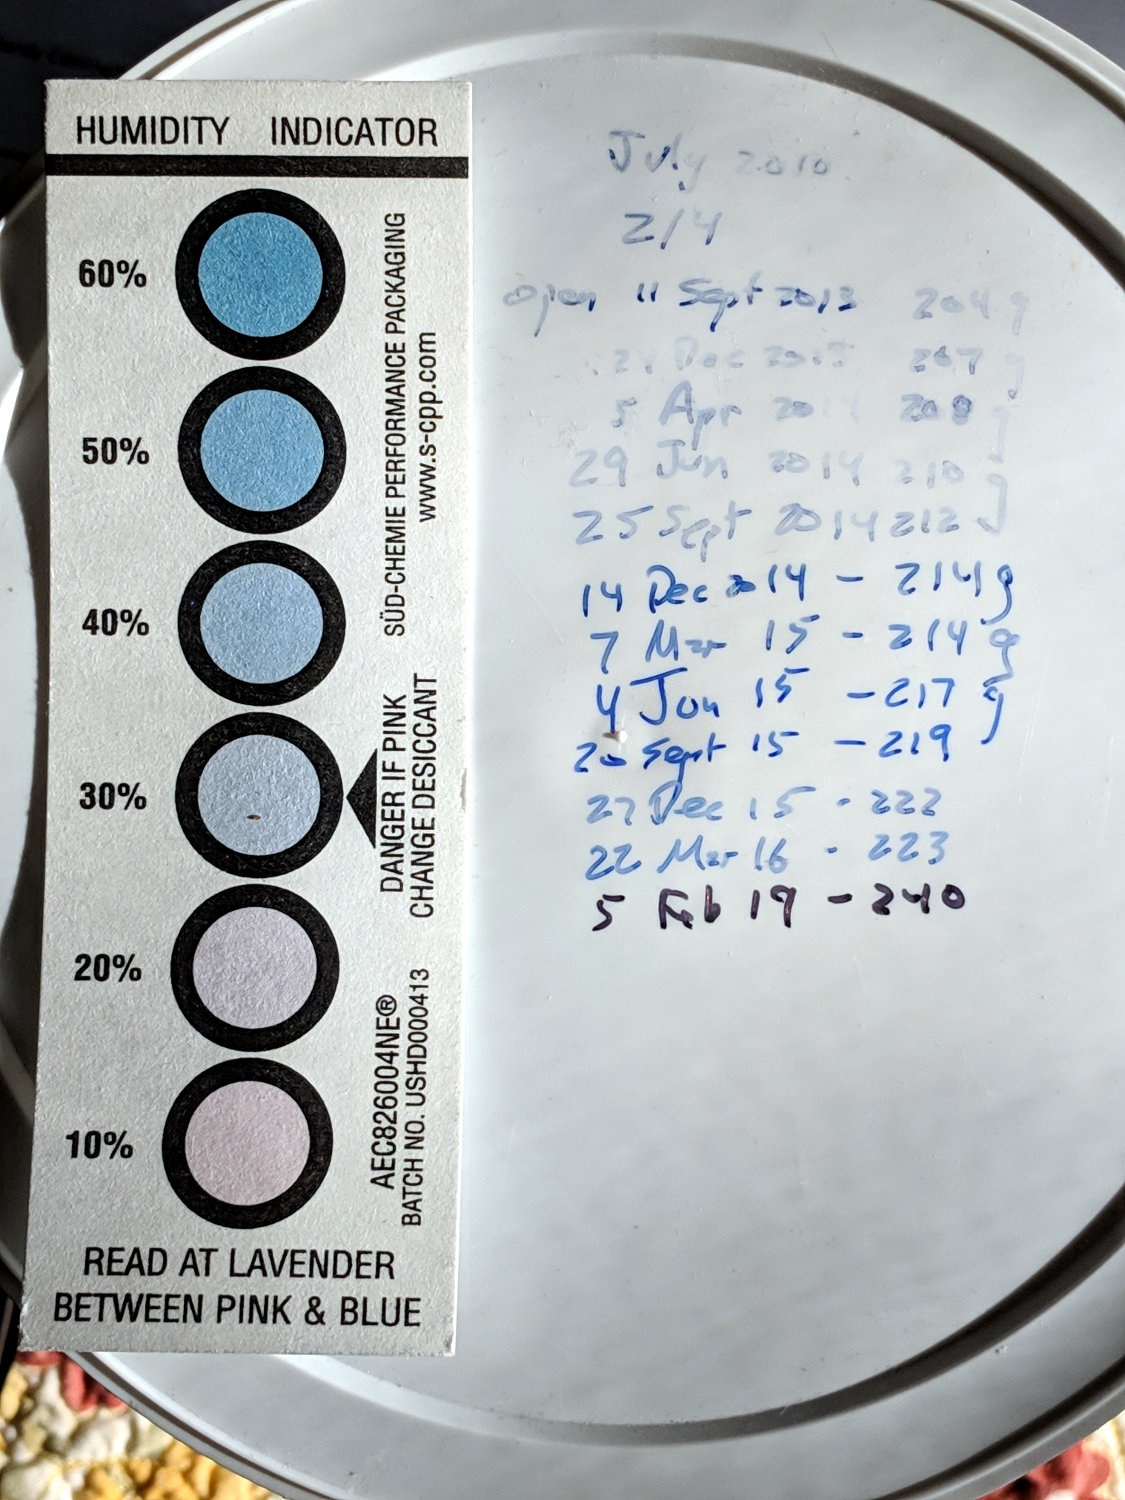 HUMIDITY INDICATOR
60%
50%
40%
30%
20%
10%
SÜD-CHEMIE PERFORMANCE PACKAGING
www.s-cpp.com
DANGER IF PINK
CHANGE DESICCANT
AEC826004NE®
BATCH NO. USHD000413
READ AT LAVENDER
BETWEEN PINK & BLUE
July 2010
2/4
open 11 Sept 2013 204 g
Dec 2013 207 g
5 Apr 2014 208 g
29 Jun 2014 210 g
25 Sept 2014 212 g
14 Dec 2014 - 214 g
7 Mar 15 - 214 g
4 Jun 15 - 217 g
20 Sept 15 - 219
27 Dec 15 - 222
22 Mar 16 - 223
5 Feb 19 - 240